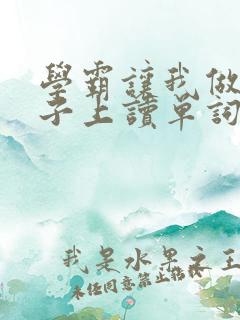 學霸讓我做
子上讀單詞
我是水墨之王
未经同意禁止搭载